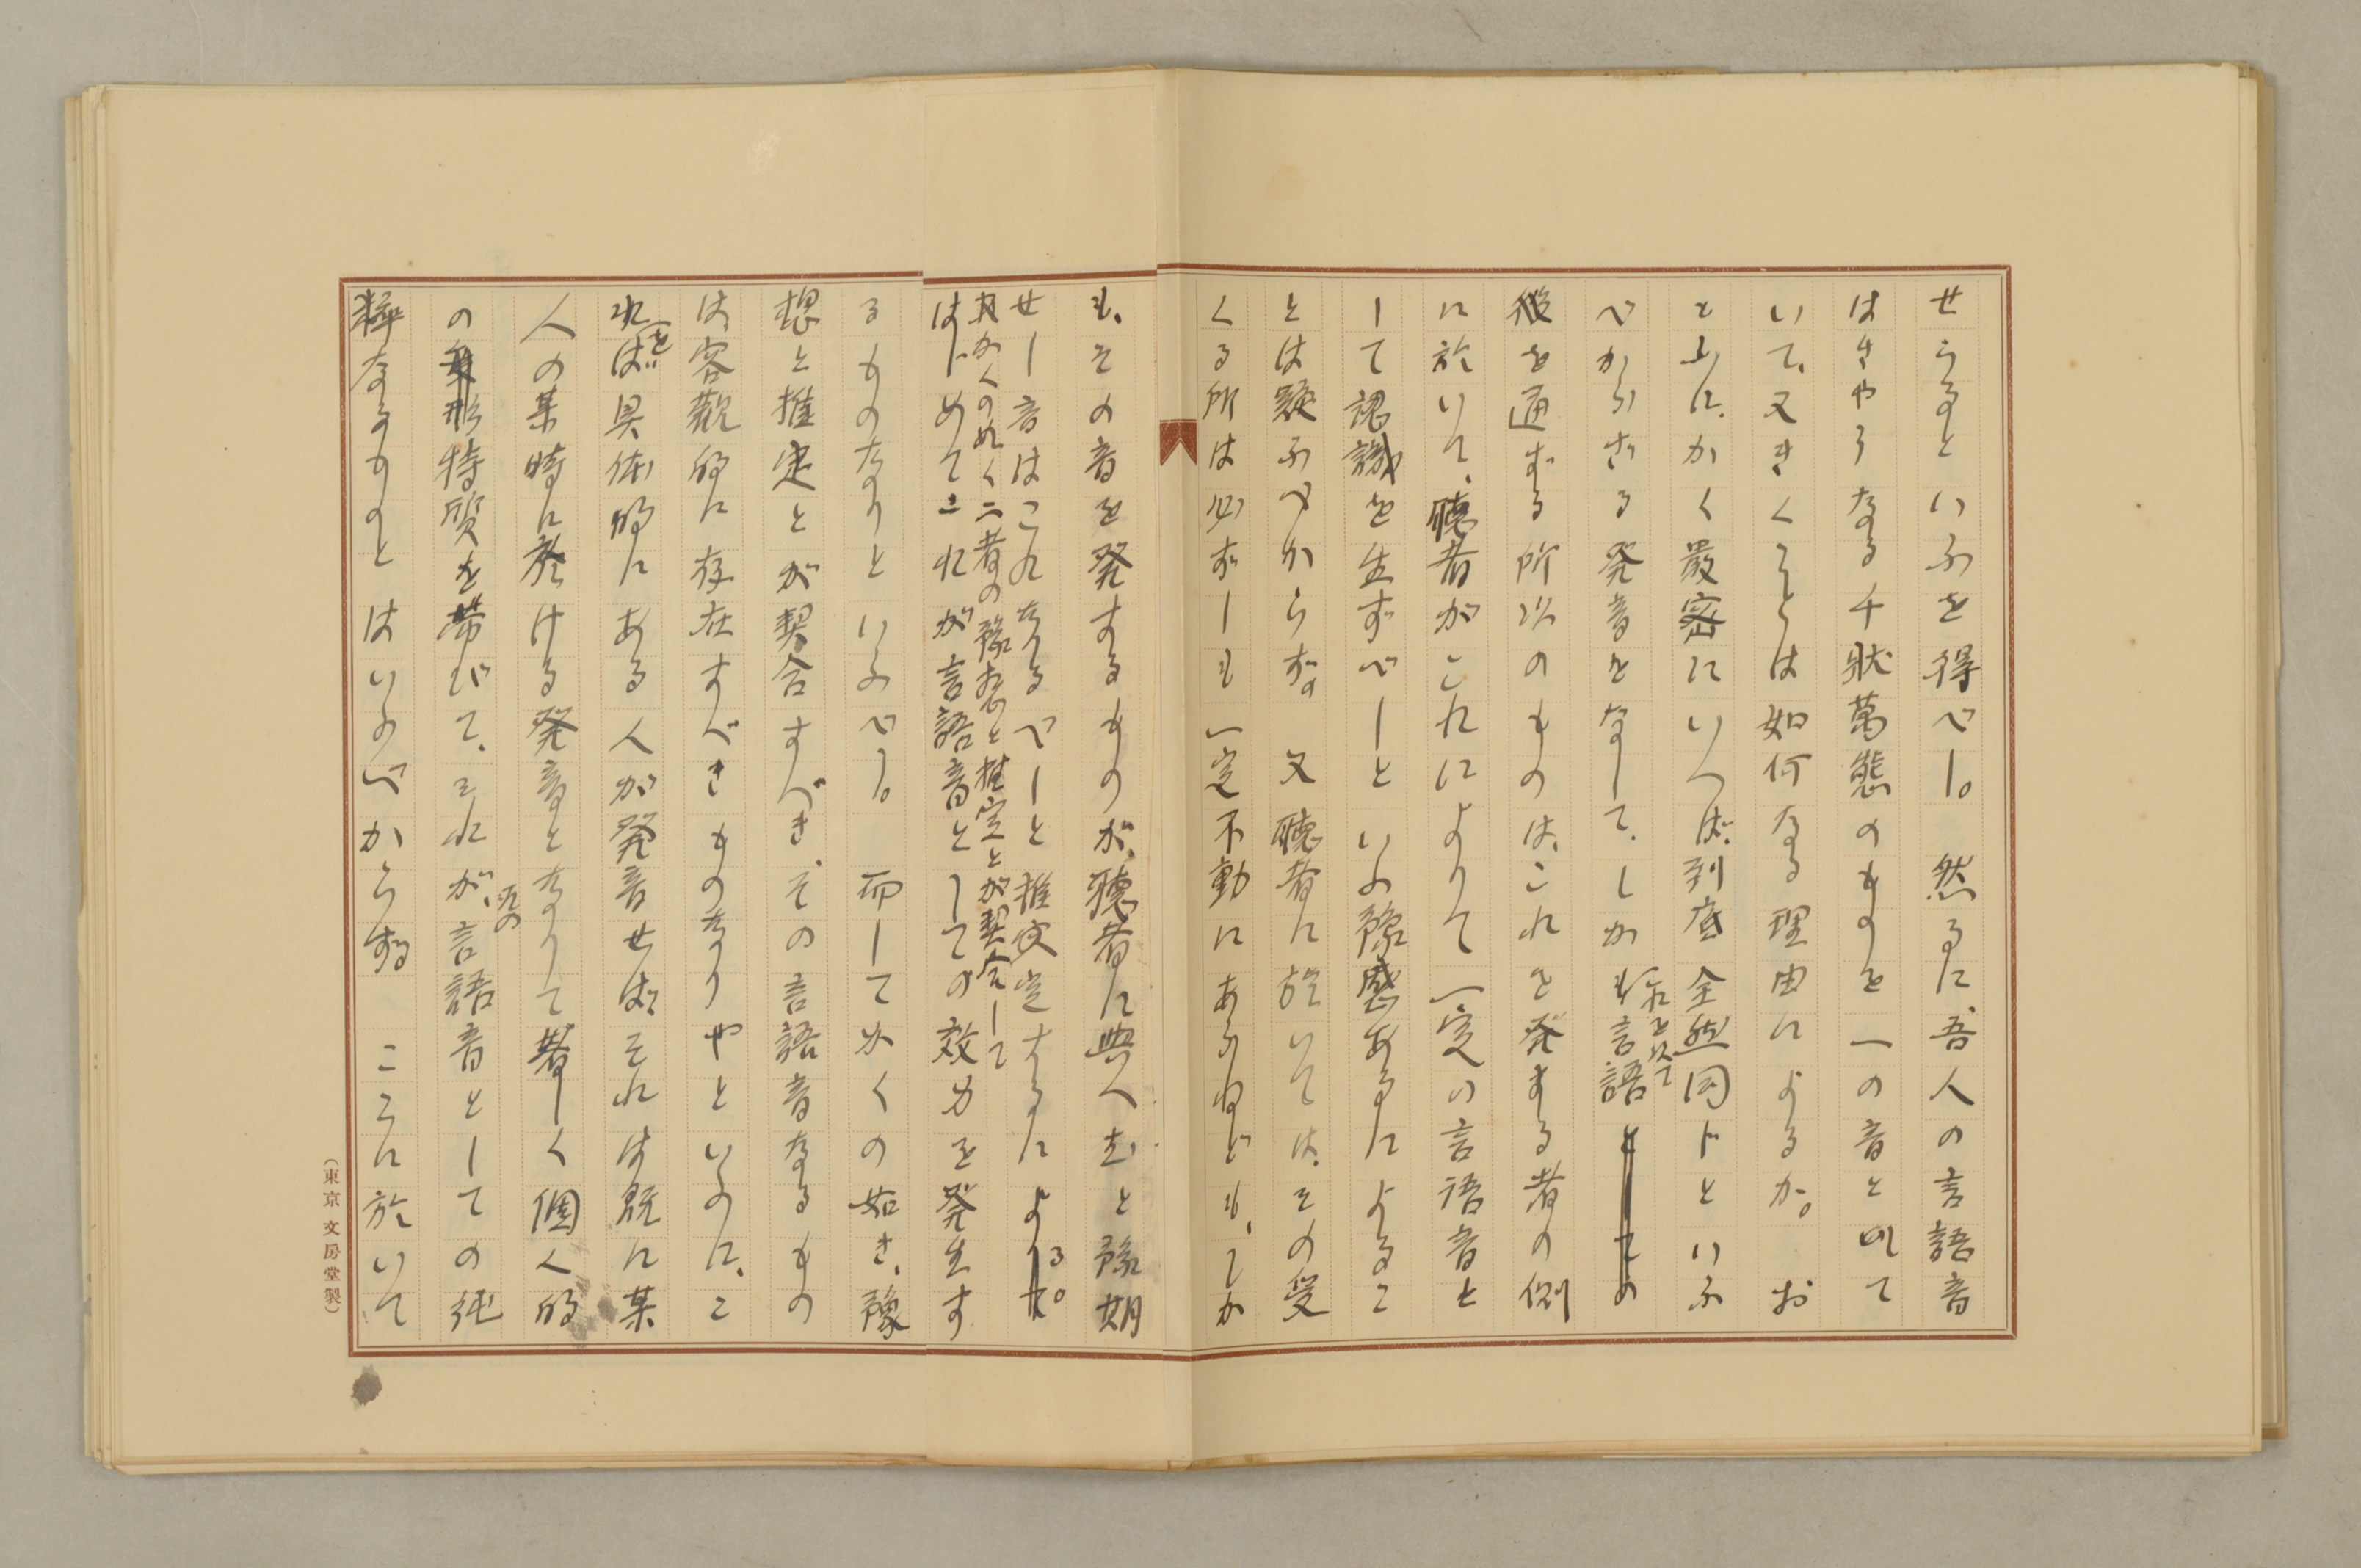 せらるといふを得べし。　然るに、吾人の言語音
はさやうなる千狀萬態のものを一の音として
いて、又きくことは如何なる理由によるか。　お
とふに、かく嚴密にいへば、到底全然同じといふ
べからざる発音をなして、しかも言語の
これを以て
役を通ずる所以のものは、これを発する者の側
に於いて、聴者がこれによりて一定の言語音と
して認識を生ずべしといふ豫感あるによるこ
とは疑ふべからず。　又聴者に於いては、その受
くる所は必ずしも一定不動にあらねども、しか
も、その音を発するものが、聴者に與へむと豫期
せし音はこれなるべしと推定するによる。
かくの如く二者の豫想と推定とが契合して
はじめてこれが言語音としての效力を発生す
るものなりといふべし。　而してかくの如き、豫
想と推定とが契合すべき、その言語音なるもの
は、客觀的に存在すべきものなりやといふに、こ
れをば具体的にある人が発音せば、それは既に某
人の某時に於ける発音となりて著しく個人的
の形特質を帯びて、それが、言語音としての純
粹なるものとはいふべからず　ここに於いて
（東京文房堂製）